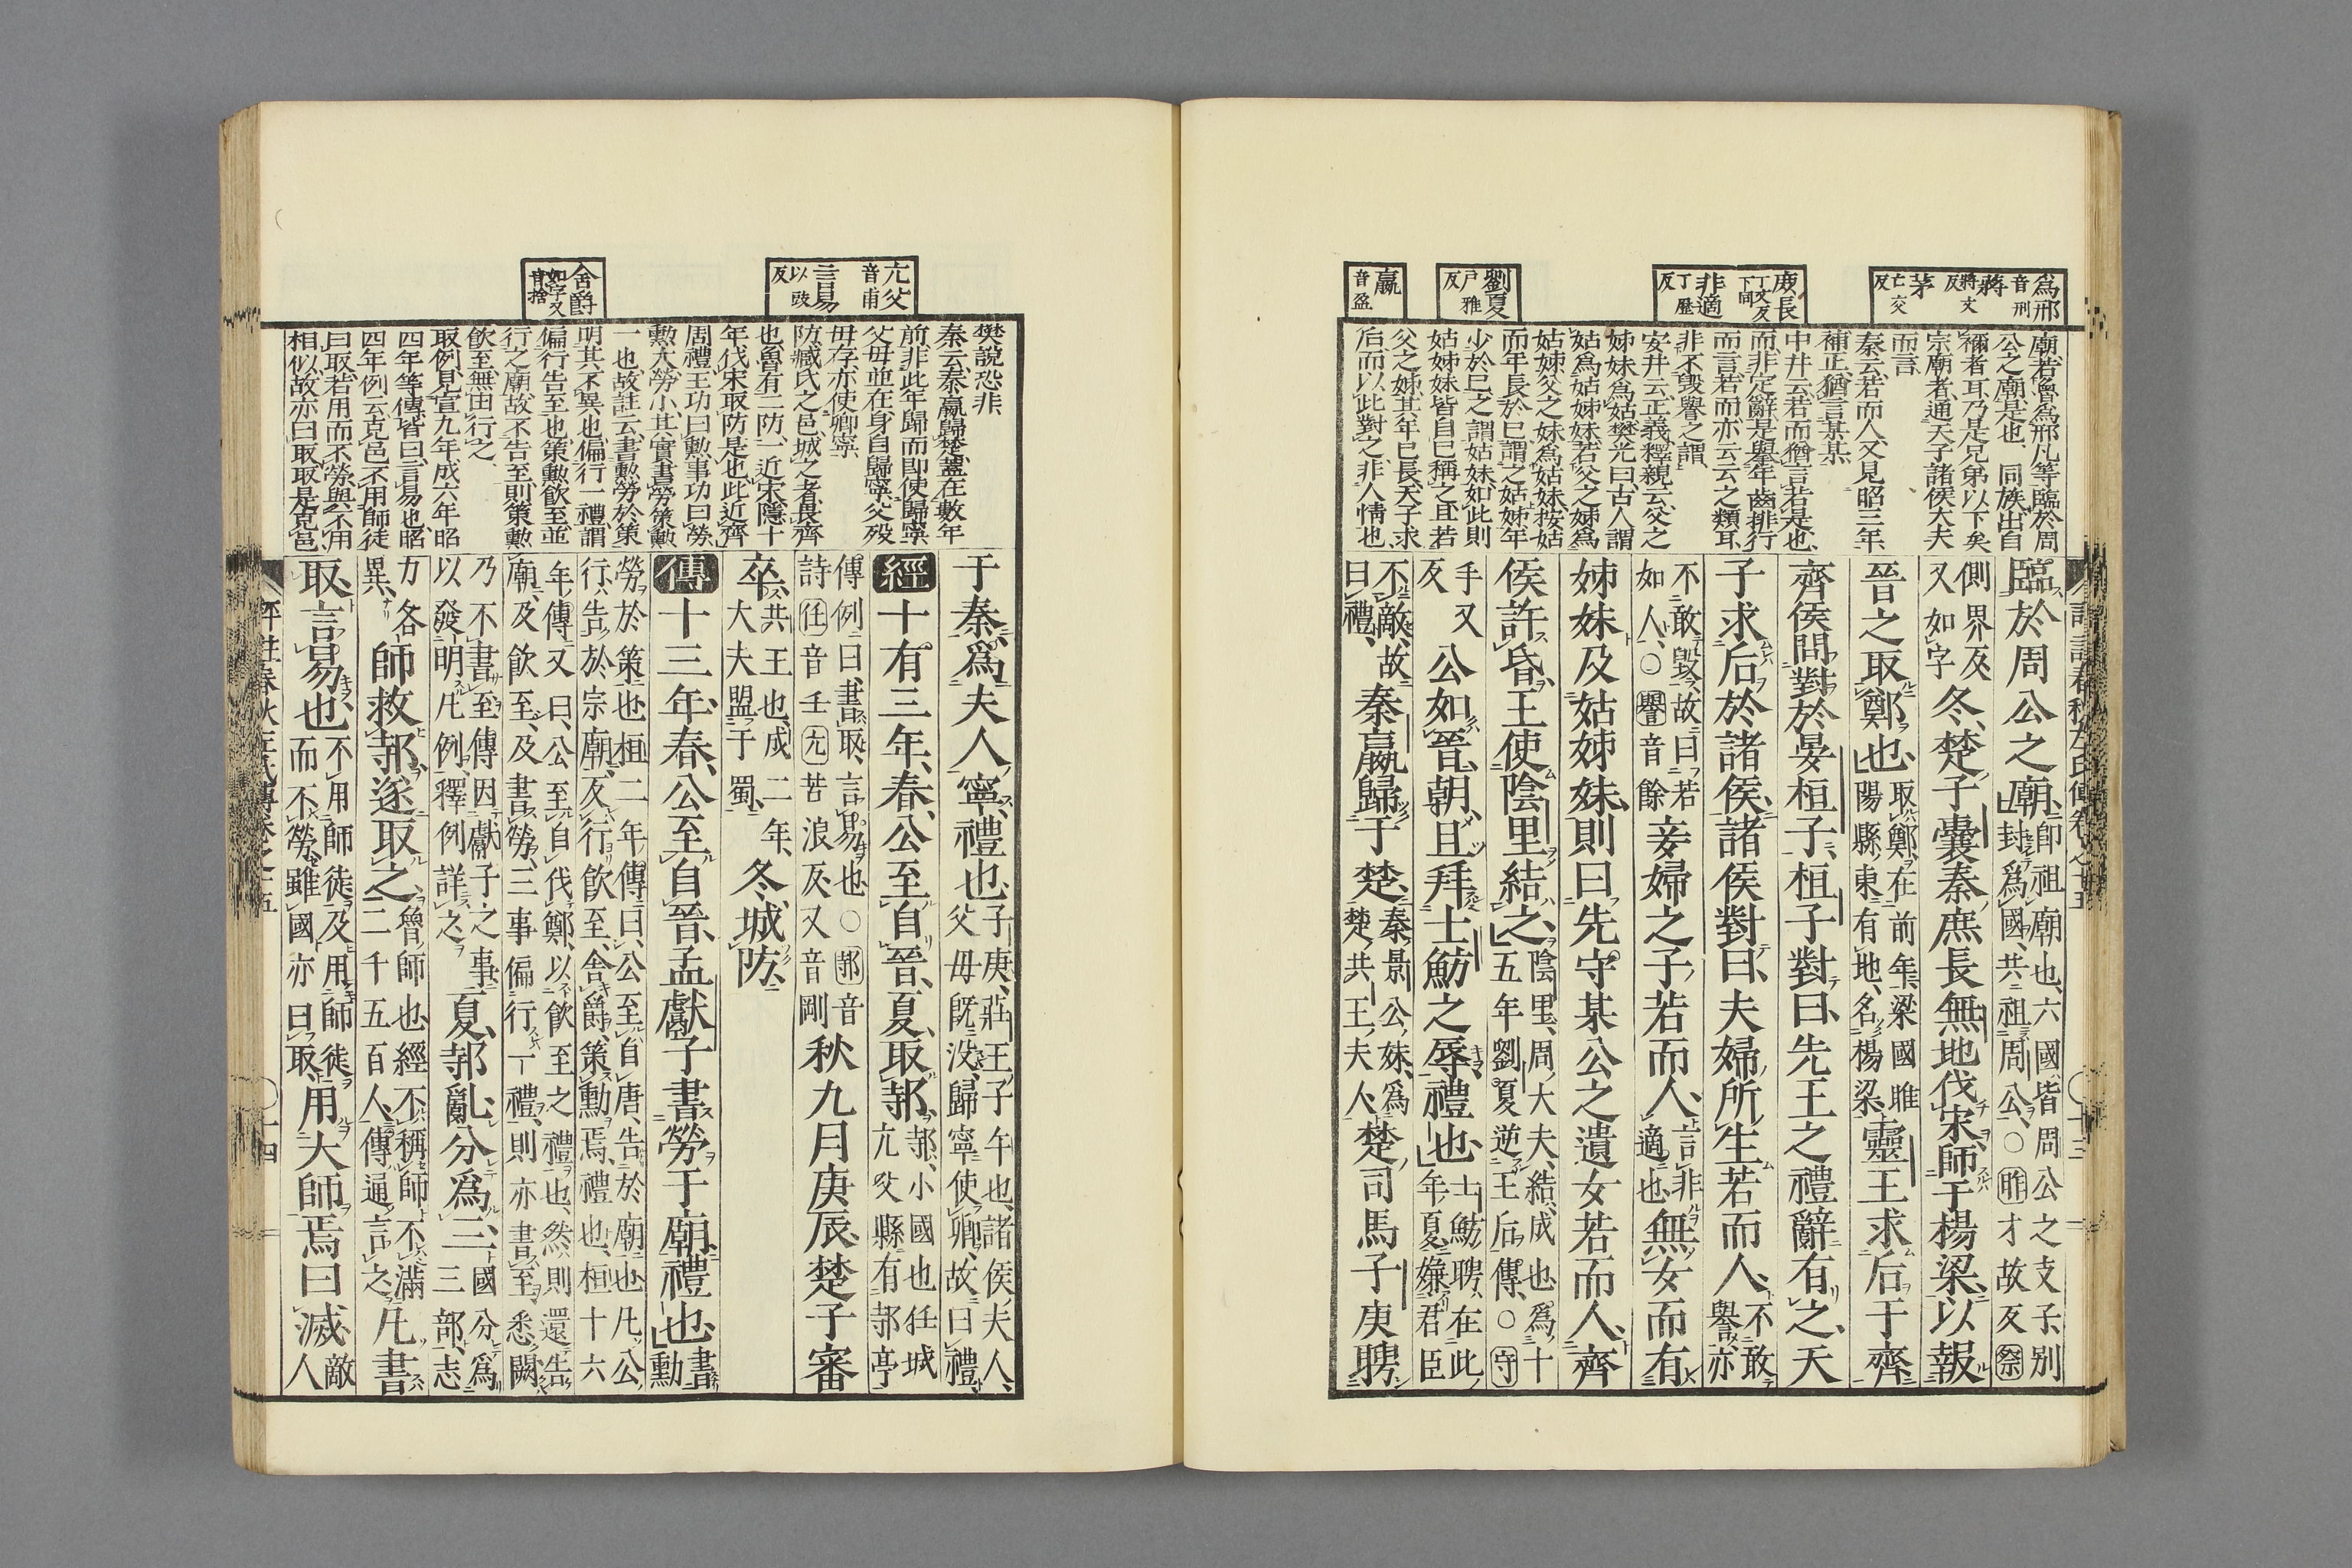 爲邢
音刑
蔣
將丈
反
茅
亡交
反
庚長
丁丈反
下同
非適
丁歷
反
劉夏
戸雅
反
嬴
音盈
廟若魯爲邢凡等臨於周
公之廟是也、同族出自
禰者耳乃是兄弟以下矣
宗廟者通天子諸侯大夫
而言
秦云若而人又見昭三年
補正猶言某某
中井云若而猶言若是也
而非定辭是舉年齒排行
而言若而亦云云之類耳
非不毀譽之謂
安井云正義釋親云父之
姊妹爲姑樊光曰古人謂
姑爲姑姊妹若父之姊爲
姑姊父之妹爲姑妹按姑
而年長於已謂之姑姊年
少於已之謂姑妹如此則
姑姊妹皆自已稱之且若
父之姊其年已長天子求
后而以此對之非人情也
臨於周公之廟、卽祖廟也、六國皆周公之支子、别
封爲國、共祖周公、○昨才故反祭
側界反
又如字冬、楚子囊秦庶長無地伐宋、師于楊梁、以報
晉之取鄭也、取鄭在前年、梁國睢
陽縣東有地名楊梁、靈王求后于齊
齊侯問對於晏桓子、桓子對曰、先王之禮辭有之、天
子求后於諸侯、諸侯對曰、夫婦所生若而人、不敢
譽、亦
不敢毀、故曰若
如人、○譽音餘妾婦之子若而人、言非
適也無女而有
姊妹及姑姊妹、則曰先守某公之遺女若而人、齊
侯許昏、王使陰里結之、陰里、周大夫、結成也爲十
五年劉夏逆王后傳、○守
手又
反公如晉、朝、且拜士魴之辱、禮也、士魴聘在此
年夏、嫌君臣
不敵、故
曰禮、秦嬴歸于楚、秦景公妹、爲
楚共王夫人、楚司馬子庚聘
亢父
音甫
言易
以豉
反
舍爵
如字又
音捨
樊說恐非
秦云秦嬴歸楚蓋在數年
前非此年歸而卽使歸寧
父母並在身自歸寧父殁
母存亦使卿寧
防臧氏之邑城之者畏齊
也魯有二防一近宋隱十
年伐宋取防是也此近齊
周禮王功曰勲事功曰勞
勲大勞小其實書勞策勲
一也故註云書勲勞於策
明其不異也偏行一禮謂
偏行告至也策勲飲至並
行之廟故不告至則策勲
飲至無由行之
取例見宣九年成六年昭
四年等傳皆曰言易也昭
四年例云克邑不用師徒
曰取若用而不勞與不用
相似故亦曰取取是克邑
于秦、爲夫人寧、禮也、子庚、莊王子午也、諸侯夫人、
父母既沒、歸寧使卿、故曰禮
經十有三年、春、公至自晉、夏、取邿、邿小國也任城
亢父縣有邿亭
傳例曰、書取、言易也○邿音
詩任音壬亢苦浪反又音剛秋九月庚辰楚子審
卒、共王也、成二年、
大夫盟于蜀、冬、城防、
傳十三年、春、公至自晉、孟獻子書勞于廟、禮也、書
勲
勞於策也桓二年傳曰、公至自唐、告於廟也凡公
行告於宗廟、反行飲至、舍爵、策勲焉、禮也、桓十六
年傳又曰、公至自伐鄭、以飲至之禮也、然則還告
廟、及飲至、及書勞、三事偏行一禮、則亦書至、悉闕
乃不書至傳因獻子之事
以發明凡例、釋例詳之夏、邿亂、分爲三、國分爲
三部、志
力各
異、師救邿、遂取之、魯師也經不稱師、不滿
二千五百人、傳通言之、凡書
取、言易也、不用師徒、及用師徒
而不勞、雖國亦曰取用大師焉曰滅、敵
人